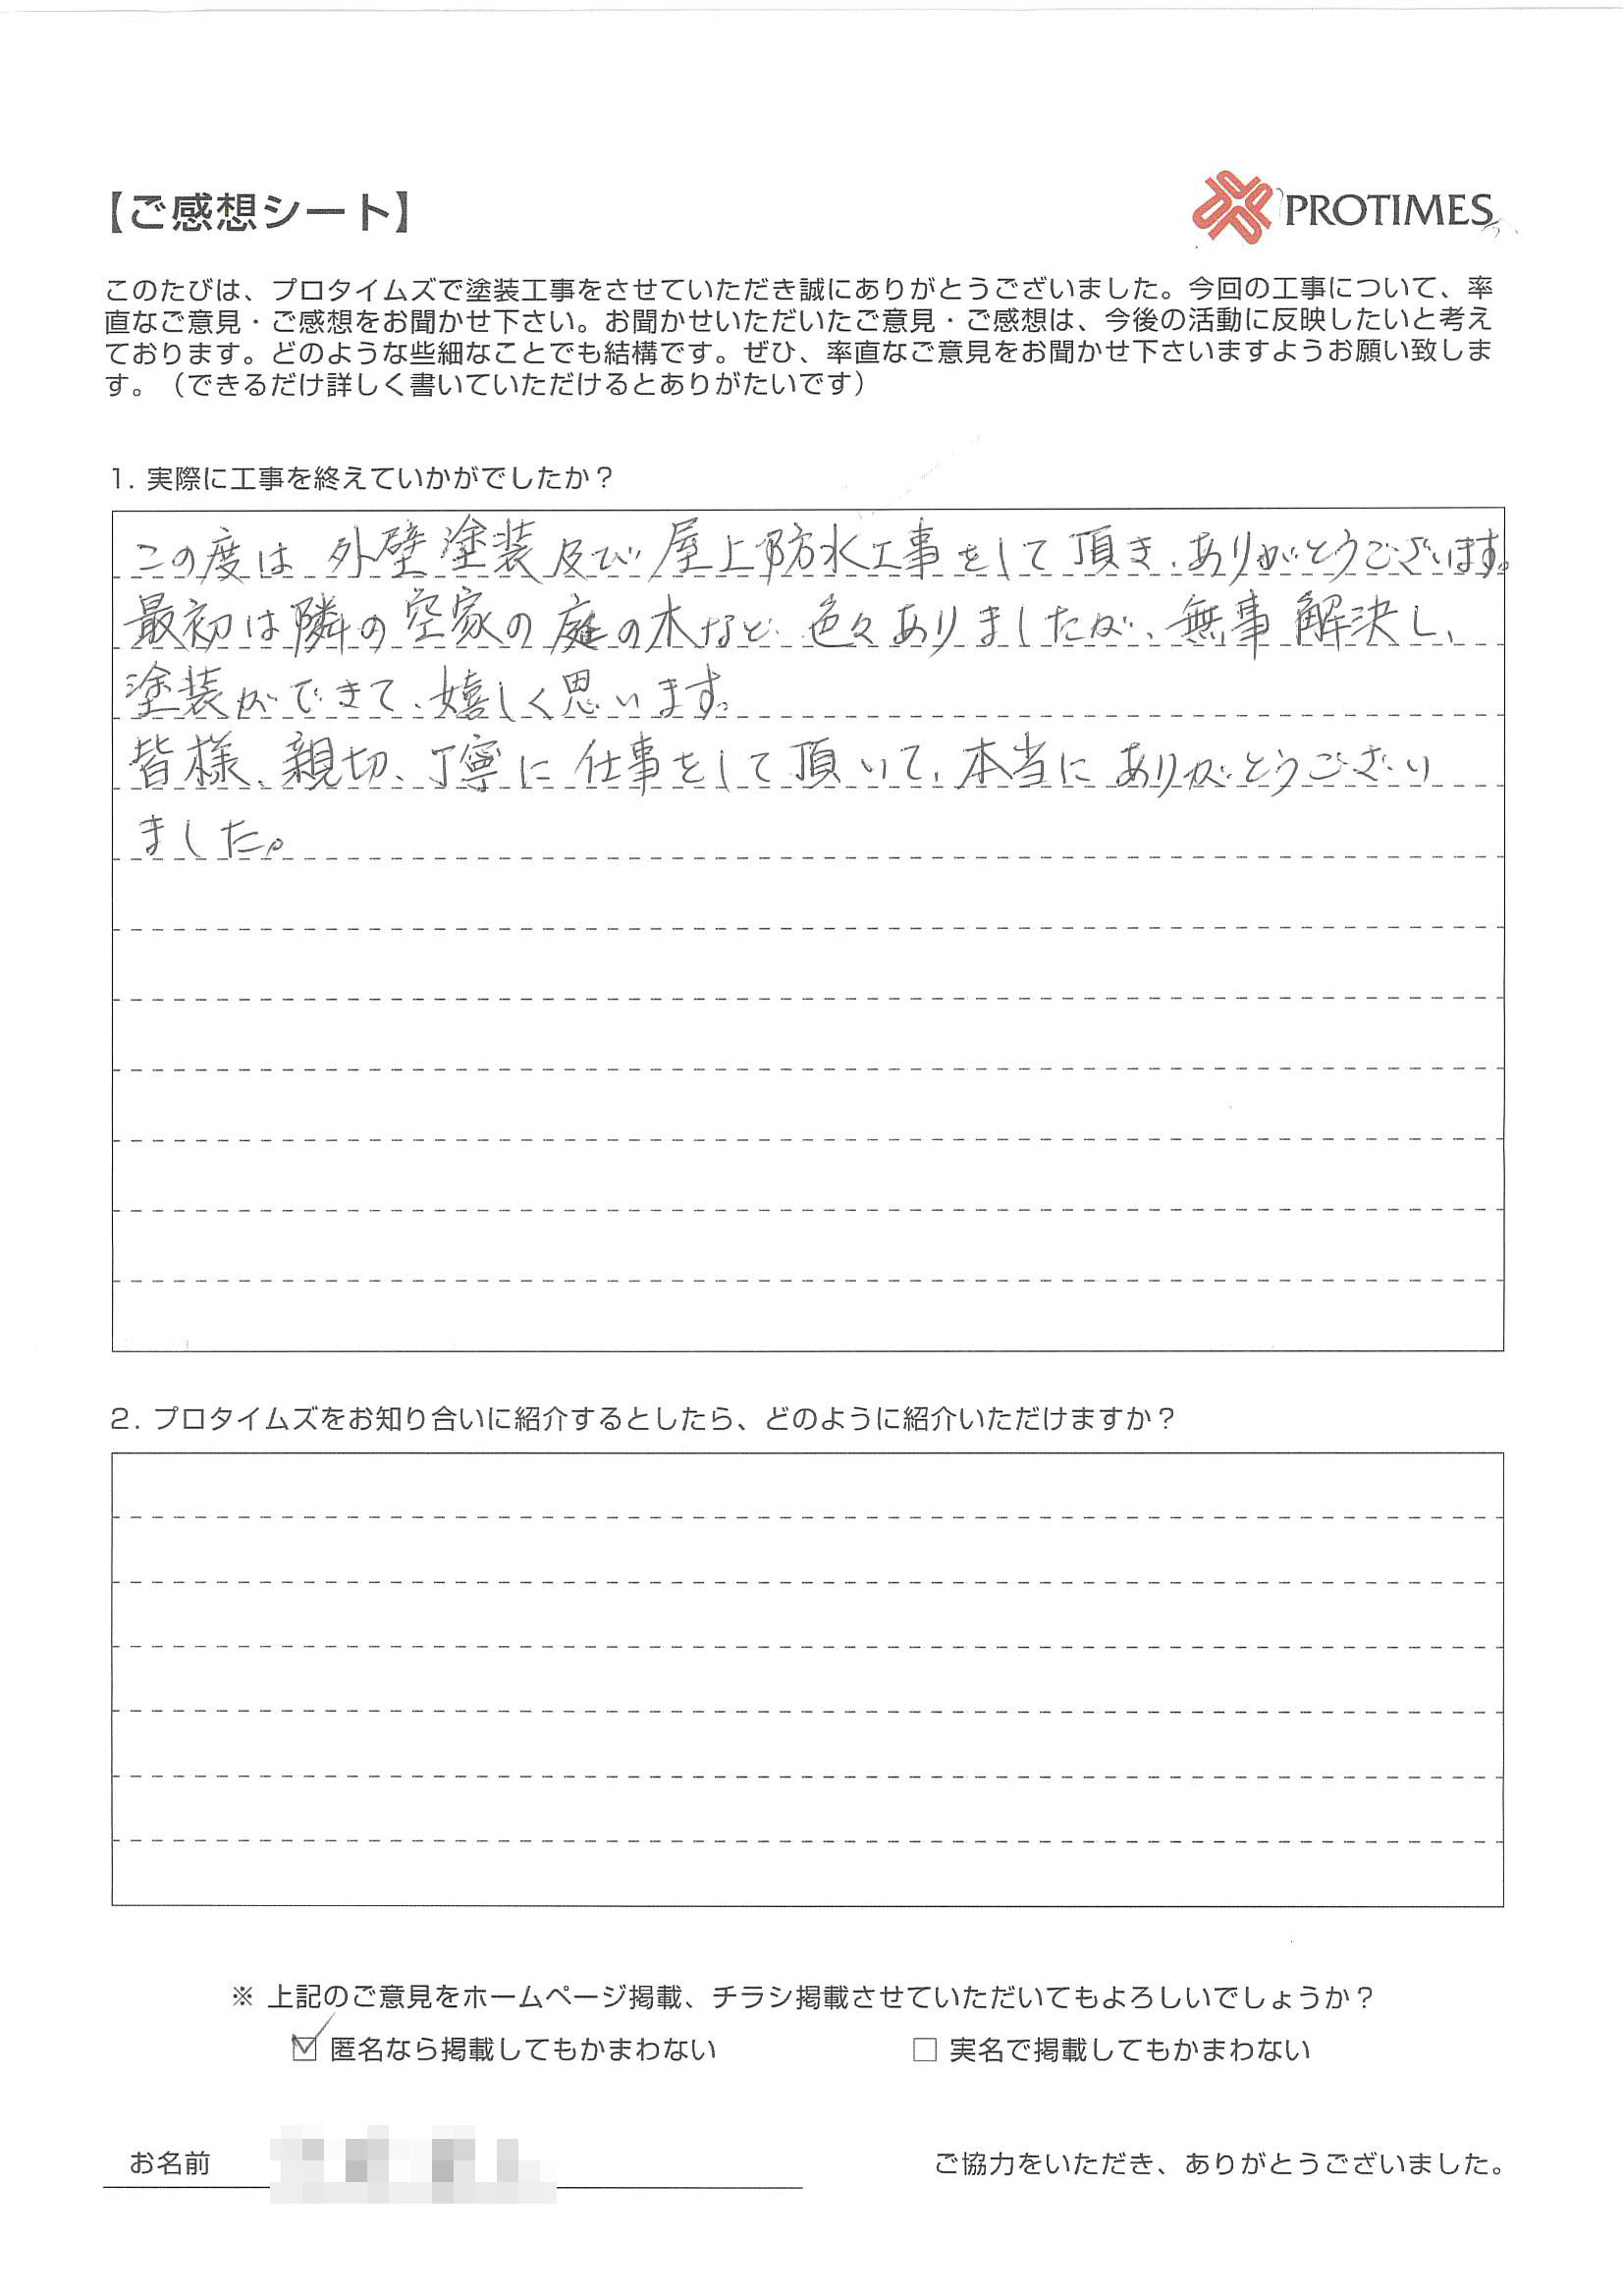 【ご感想シート】
PROTIMES
このたびは、プロタイムズで塗装工事をさせていただき誠にありがとうございました。今回の工事について、率
直なご意見・ご感想をお聞かせ下さい。お聞かせいただいたご意見・ご感想は、今後の活動に反映したいと考え
ております。どのような些細なことでも結構です。ぜひ、率直なご意見をお聞かせ下さいますようお願い致しま
す。（できるだけ詳しく書いていただけるとありがたいです）
1. 実際に工事を終えていかがでしたか？
この度は 外壁塗装及び屋上防水工事をして頂き、ありがとうございます。
最初は隣の空家の庭の木など、色々ありましたが、無事解決し、
塗装ができて、嬉しく思います。
皆様、親切、丁寧に仕事をして頂いて、本当にありがとうござい
ました。
2. プロタイムズをお知り合いに紹介するとしたら、どのように紹介いただけますか？
※ 上記のご意見をホームページ掲載、チラシ掲載させていただいてもよろしいでしょうか？
☑ 匿名なら掲載してもかまわない □ 実名で掲載してもかまわない
お名前 ご協力をいただき、ありがとうございました。